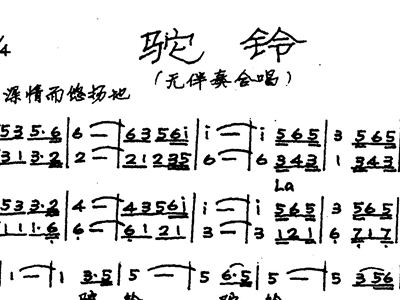 /4
驼 铃
（无伴奏合唱）
深情而悠扬地
535·6 | 6 — | 6356i | i — | i 565 | 3 565
313·2 | 2 — | 21235 | 6 — | 6 343 | 1 343
La
533·2 | 4 — | 4356i | i — | i 565 | 3 565
111·6 | 6 — | 6121 | 3 — | 3 121 | 6 717
1 — | 1 3·5 | 5 — | 5 6·5 | 5 — | 5 356
驼 铃